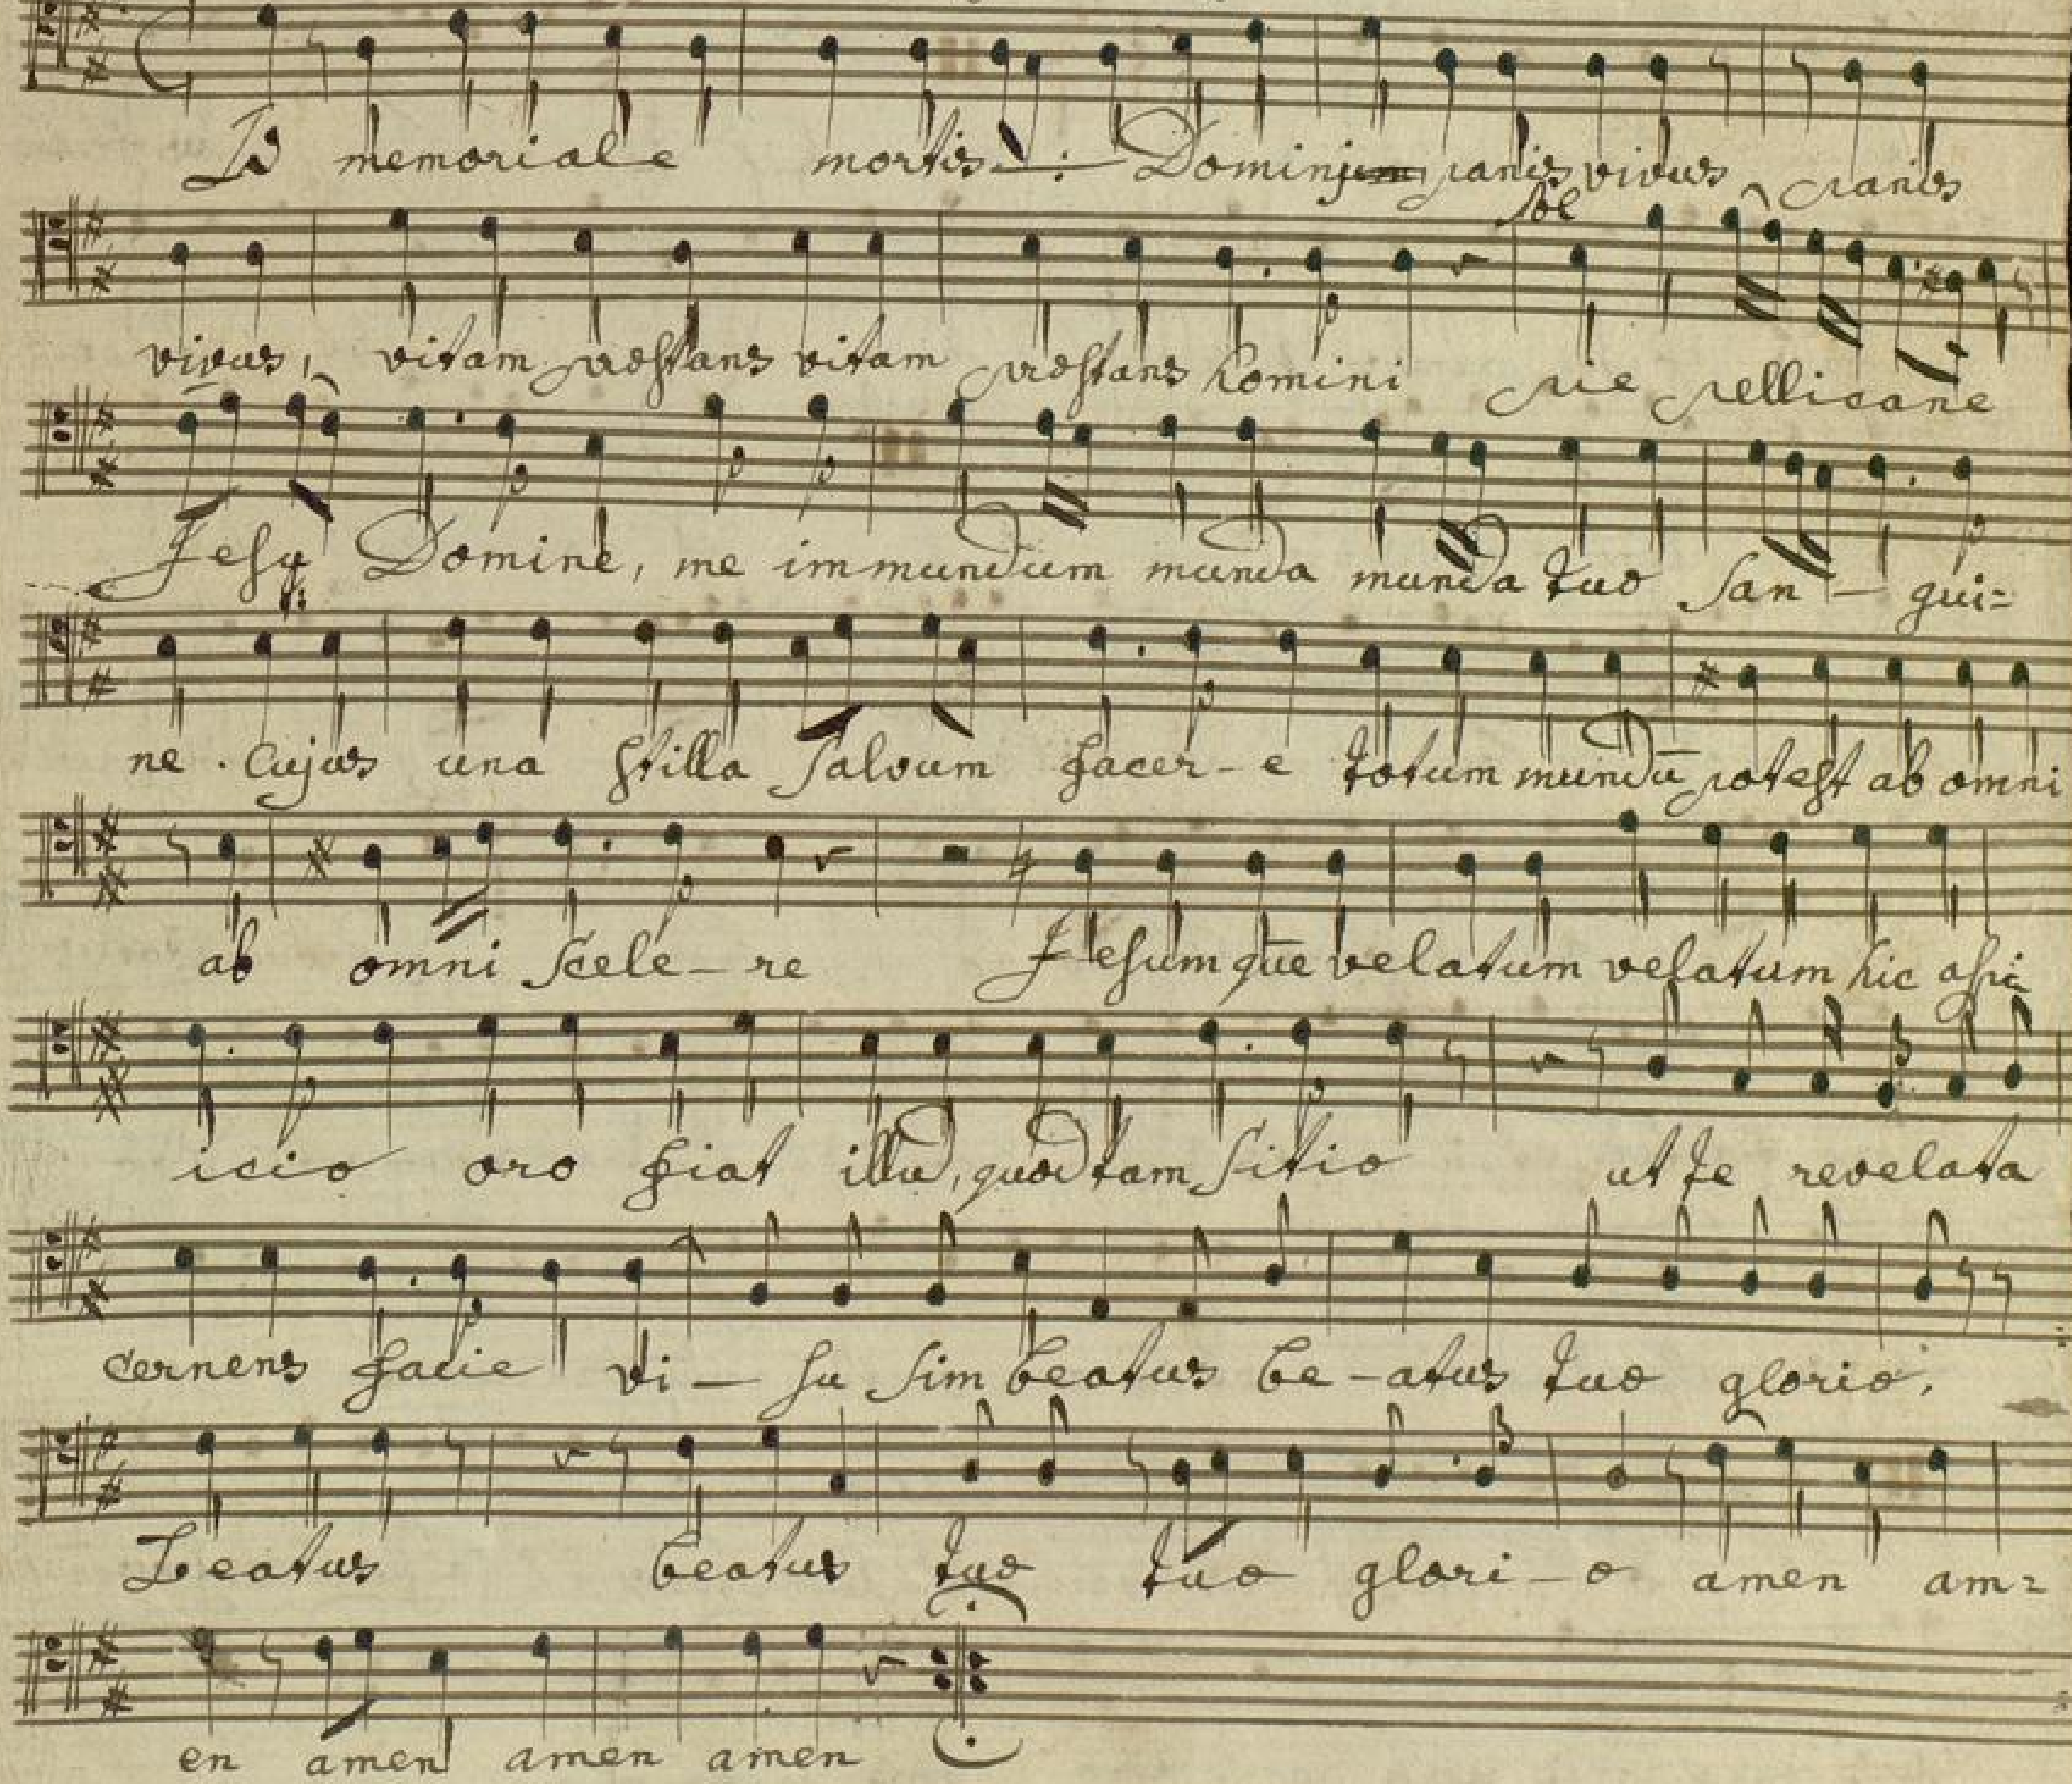 O memoriale mortis Domini panis vivus panis
Sol
vivus, vitam præstans vitam præstans homini pie pellicane
Jesu Domine, me immundum munda munda tuo San - gui=
ne. Cujus una stilla salvum facer-e totum mundū potest ab omni
ab omni scele-re Jesum que velatum velatum hic aspi=
icio oro fiat illud, quod tam sitio ut te revelata
cernens facie vi - su sim beatus be-atus tuæ gloriæ,
beatus beatus tuæ tuæ glori-æ amen am=
en amen amen amen